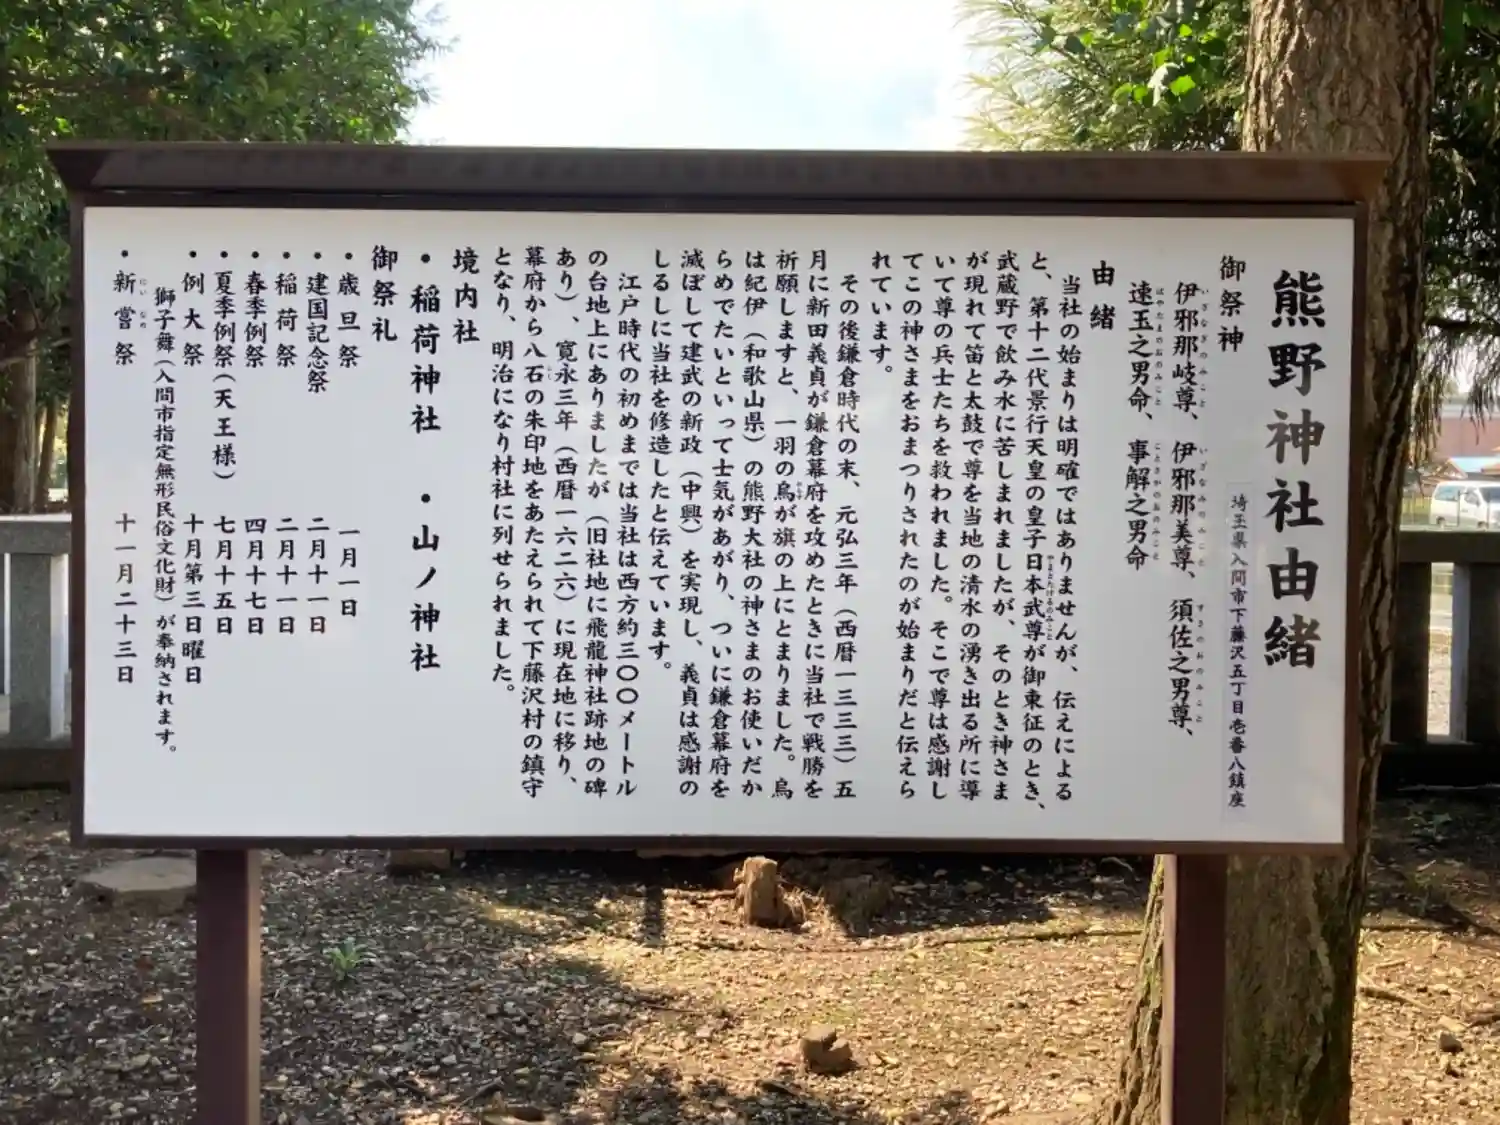 熊野神社由緒
埼玉県入間市下藤沢五丁目壱番八鎮座
御祭神
伊邪那岐尊、伊邪那美尊、須佐之男尊、
いざなぎのみこと いざなみのみこと すさのおのみこと
速玉之男命、事解之男命
はやたまのおのみこと ことさかのおのみこと
由緒
当社の始まりは明確ではありませんが、伝えによる
と、第十二代景行天皇の皇子日本武尊が御東征のとき、
やまとたけるのみこと
武蔵野で飲み水に苦しまれましたが、そのとき神さま
が現れて笛と太鼓で尊を当地の清水の湧き出る所に導
いて尊の兵士たちを救われました。そこで尊は感謝し
てこの神さまをおまつりされたのが始まりだと伝えら
れています。
その後鎌倉時代の末、元弘三年（西暦一三三三）五
月に新田義貞が鎌倉幕府を攻めたときに当社で戦勝を
祈願しますと、一羽の烏が旗の上にとまりました。烏
からす
は紀伊（和歌山県）の熊野大社の神さまのお使いだか
らめでたいといって士気があがり、ついに鎌倉幕府を
滅ぼして建武の新政（中興）を実現し、義貞は感謝の
しるしに当社を修造したと伝えています。
江戸時代の初めまでは当社は西方約三〇〇メートル
の台地上にありましたが（旧社地に飛龍神社跡地の碑
あり）、寛永三年（西暦一六二六）に現在地に移り、
幕府から八石の朱印地をあたえられて下藤沢村の鎮守
こく
となり、明治になり村社に列せられました。
境内社
・稲荷神社 ・山ノ神社
御祭礼
・歳旦祭 一月一日
・建国記念祭 二月十一日
・稲荷祭 二月十一日
・春季例祭 四月十七日
・夏季例祭（天王様） 七月十五日
・例大祭 十月第三日曜日
獅子舞（入間市指定無形民俗文化財）が奉納されます。
・新嘗祭 十一月二十三日
にいなめ